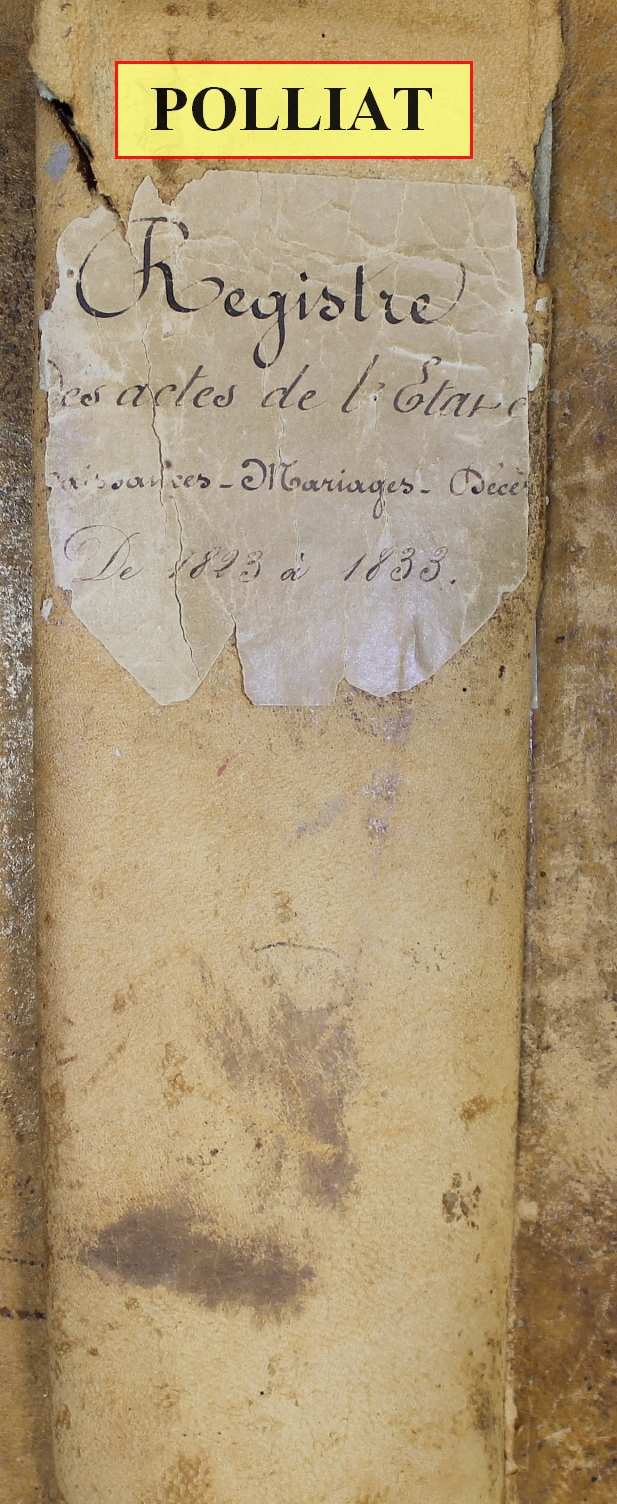 POLLIAT
Registre
Des actes de l'Etat c
aissances - Mariages - Décè
De 1823 à 1833.